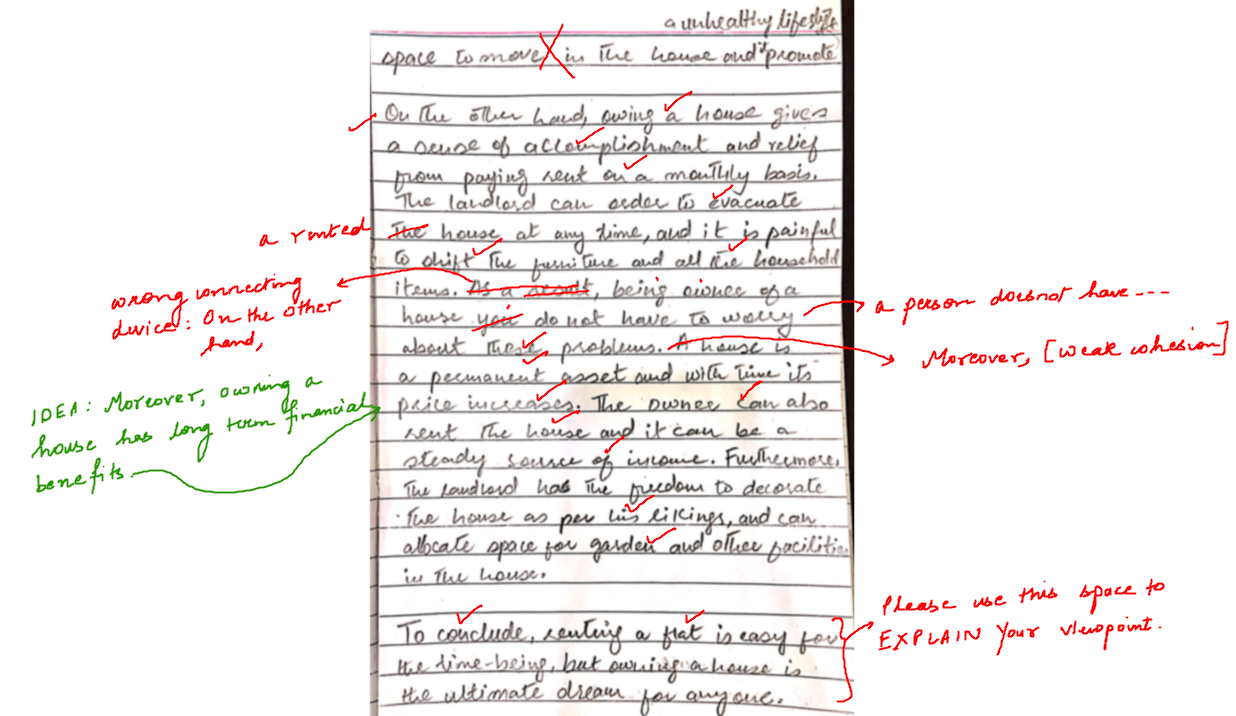 a unhealthy lifestyle
space to move in the house and it promote
On the other hand, owing a house gives
a sense of accomplishment and relief
from paying rent on a monthly basis.
The landlord can order to evacuate
a rented
The house at any time, and it is painful
to shift the furniture and all the household
items. As a result, being owner of a
wrong connecting
device: On the other
hand,
house you do not have to worry
a person doesnot have ---
about these problems. A house is
Moreover, [weak cohesion]
a permanent asset and with time its
IDEA: Moreover, owning a
house has long term financial
benefits.
price increases. The owner can also
rent the house and it can be a
steady source of income. Furthermore,
the landlord has the freedom to decorate
the house as per his likings, and can
allocate space for garden and other facilities
in the house.
To conclude, renting a flat is easy for
the time-being, but owning a house is
the ultimate dream for anyone.
Please use this space to
EXPLAIN your viewpoint.